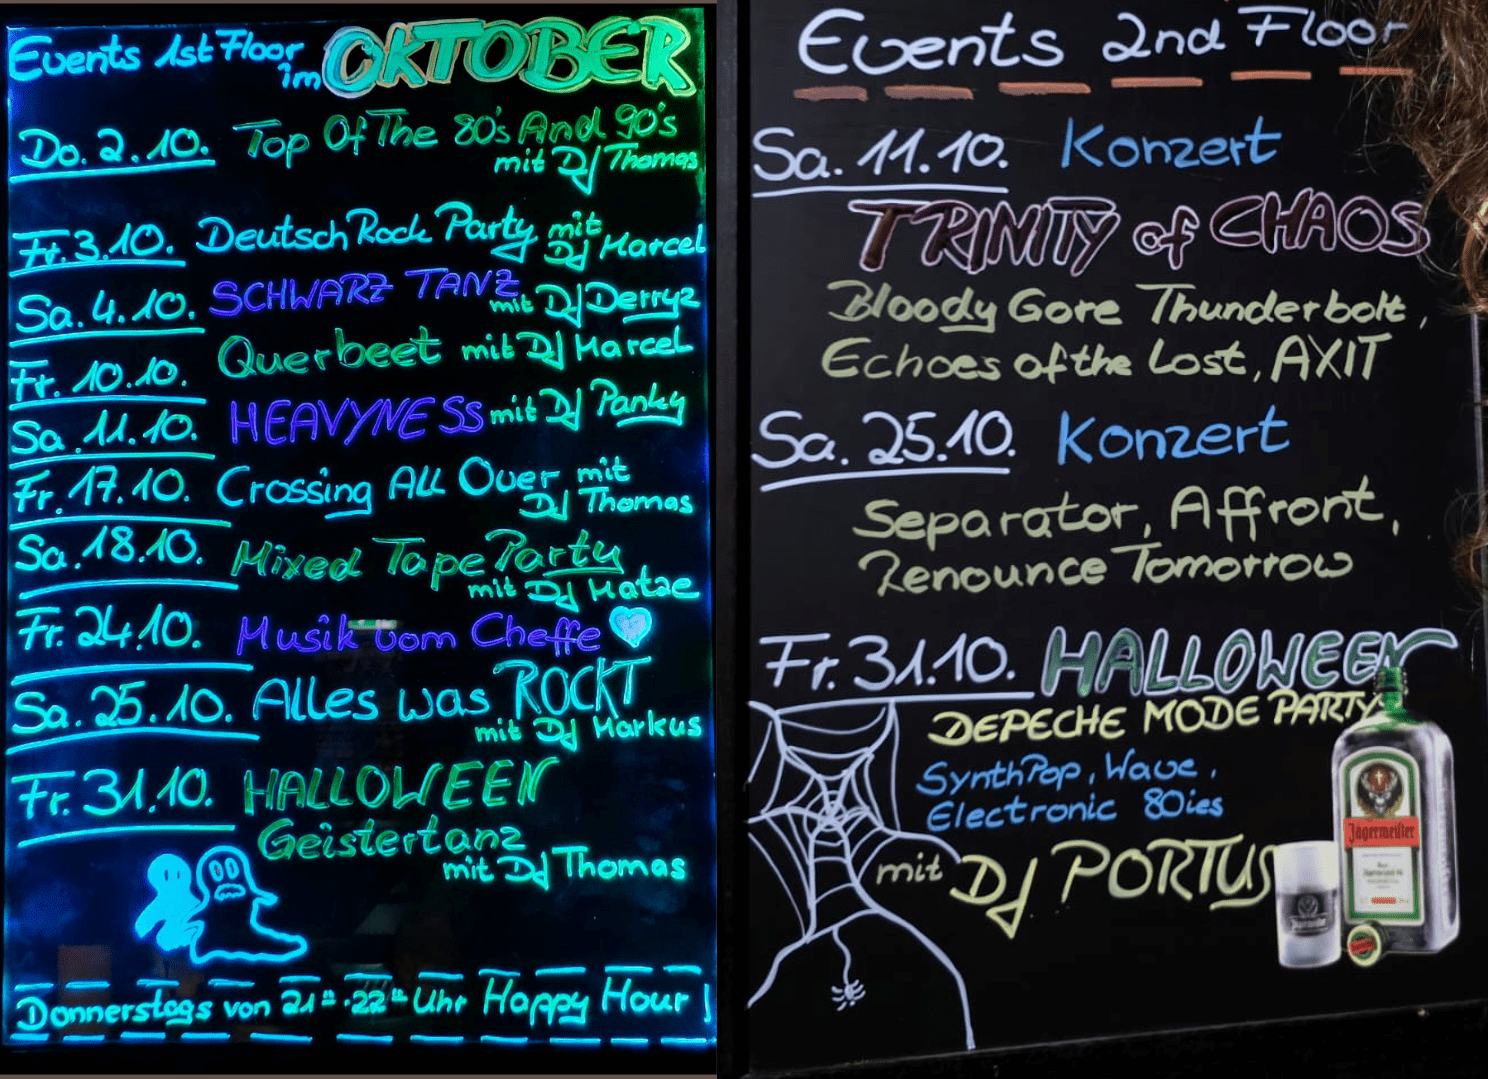 Events 1st Floor im OKTOBER
Do. 2.10. Top Of The 80's And 90's
mit DJ Thomas
Fr. 3.10. Deutsch Rock Party mit DJ Marcel
Sa. 4.10. SCHWARZ TANZ mit DJ Derryz
Fr. 10.10. Querbeet mit DJ Marcel
Sa. 11.10. HEAVYNESS mit DJ Panky
Fr. 17.10. Crossing All Over mit DJ Thomas
Sa. 18.10. Mixed Tape Party
mit DJ Matze
Fr. 24.10. Musik vom Cheffe
Sa. 25.10. Alles was ROCKT
mit DJ Markus
Fr. 31.10. HALLOWEEN
Geistertanz
mit DJ Thomas
Donnerstags von 21°°-22°° Uhr Happy Hour!
Events 2nd Floor
Sa. 11.10. Konzert
TRINITY of CHAOS
Bloody Gore Thunderbolt,
Echoes of the Lost, AXIT
Sa. 25.10. Konzert
Separator, Affront,
Renounce Tomorrow
Fr. 31.10. HALLOWEEN
DEPECHE MODE PARTY
SynthPop, Wave,
Electronic 80ies
mit DJ PORTUS
Jägermeister